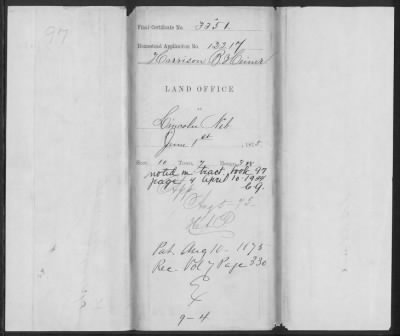 97
Final Certificate No. 3351
Homestead Application No. 13217
Harrison B.
LAND OFFICE
Lincoln Neb
June 1st, 1875.
Sect. 10 Town, 7 Range, 3
noted in tract book 97
page 4 April 10 1904
C.G.
Pat. Aug 10 - 1875
Rec. Vol 7 Page 330
9-4